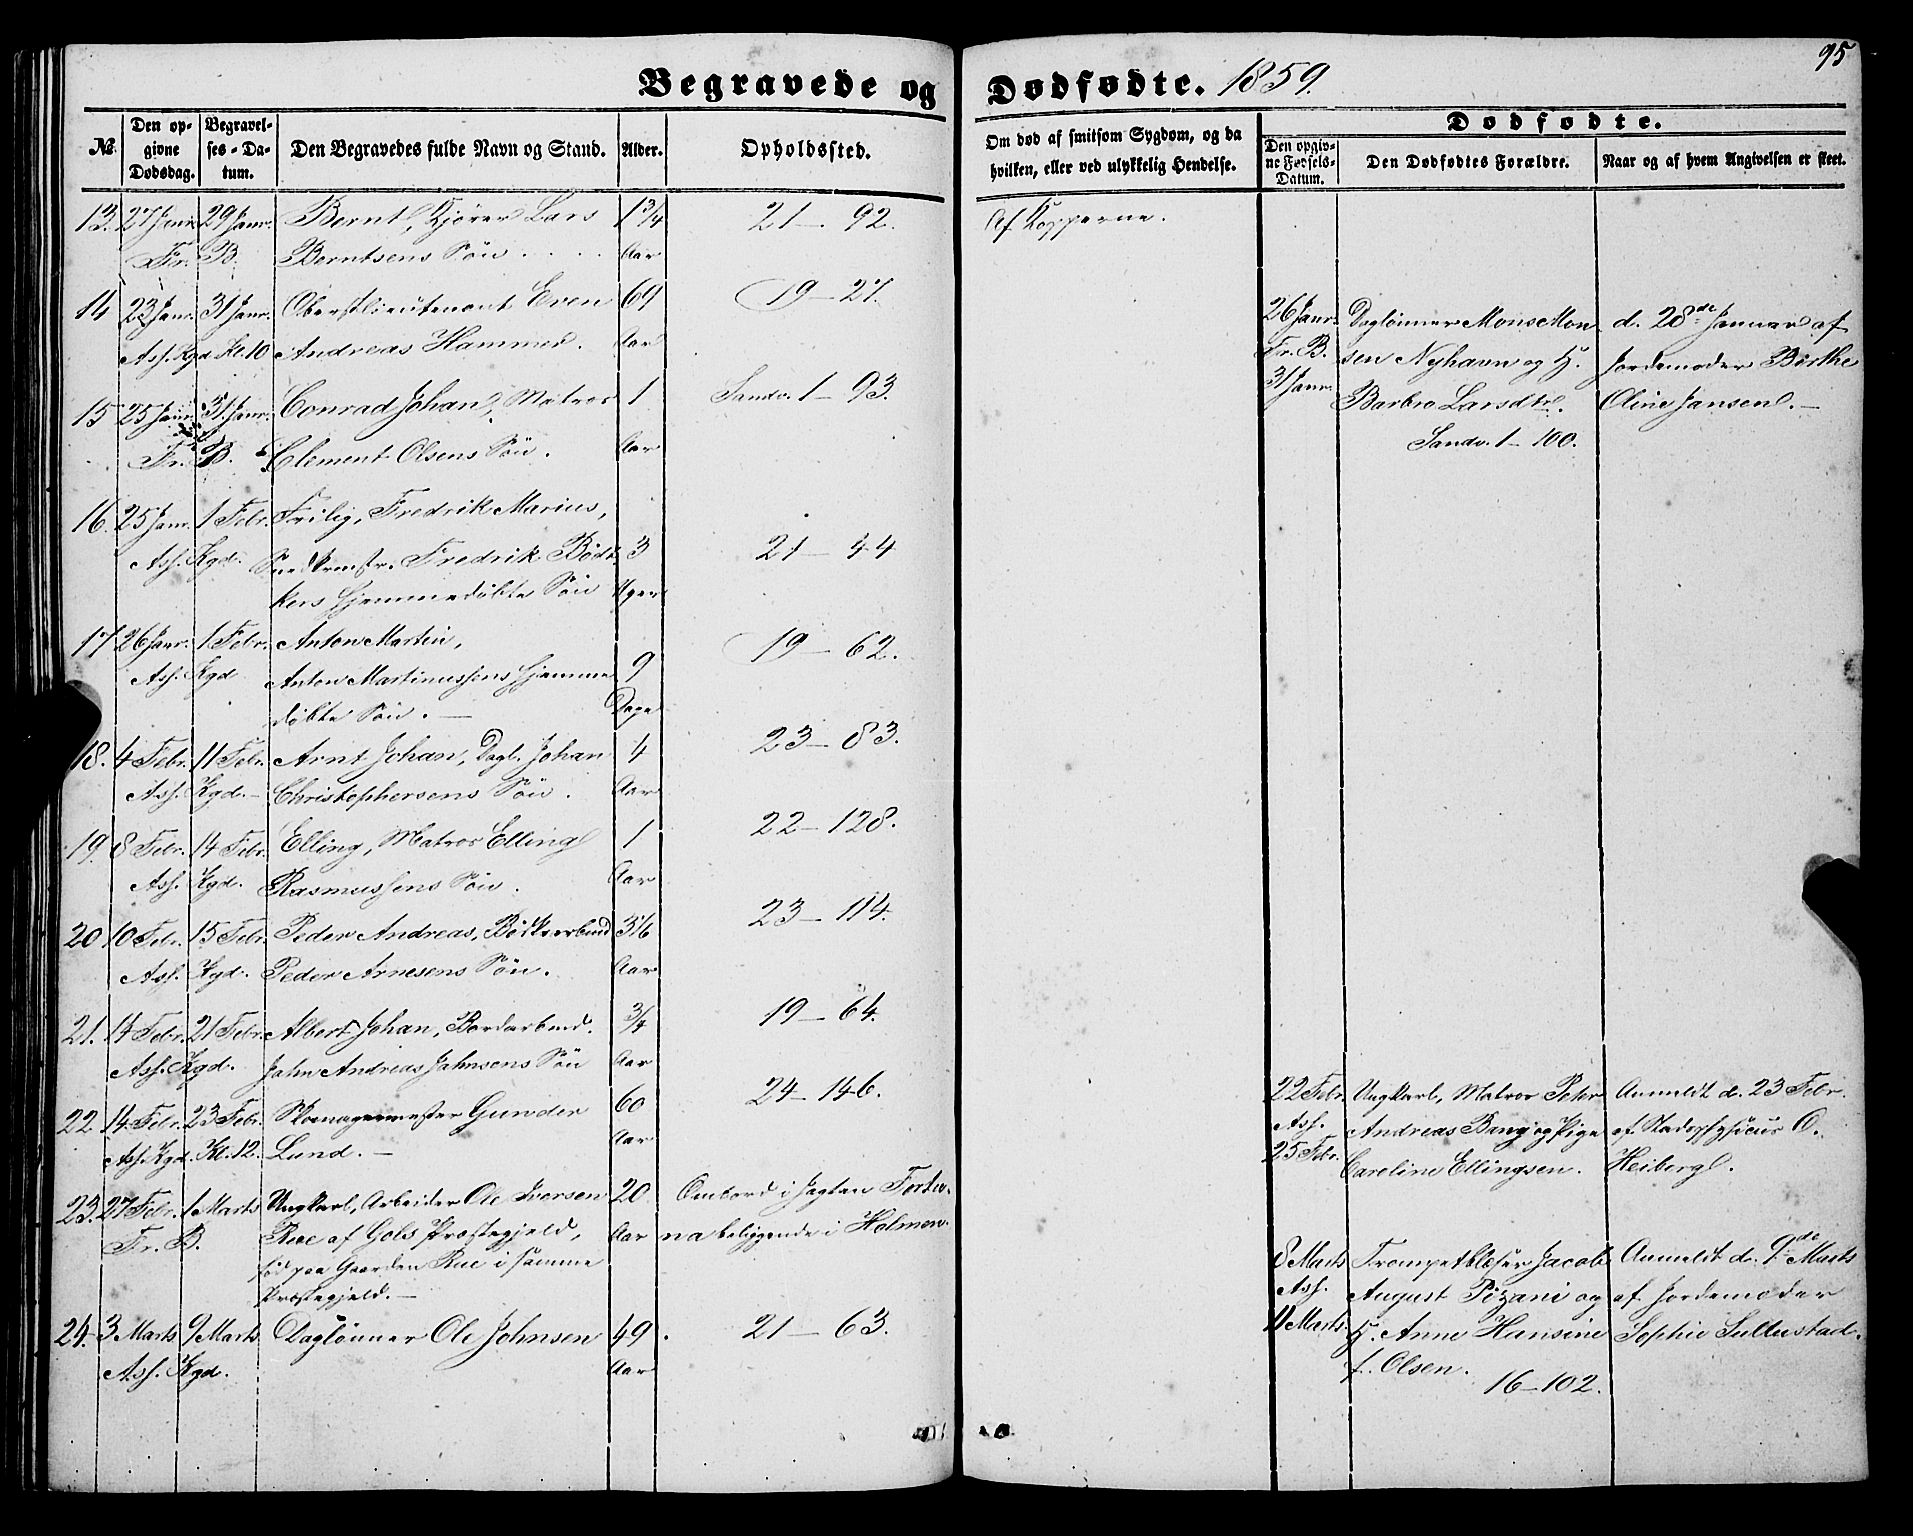 95
Begravede og Dødfødte. 1859.
№.
Den opgivne Dødsdag.
Begravelses-Datum.
Den Begravedes fulde Navn og Stand.
Alder.
Opholdssted.
Om død af smitsom Sygdom, og da hvilken, eller ved ulykkelig Hendelse.
Dødfødte.
Den opgivne Fødsels-Datum.
Den Dødfødtes Forældre.
Naar og af hvem Angivelsen er skeet.
13. 27 Janr. 29 Janr. Bernt, Kjører Lars 1 3/4 21 – 92. Af Kopperne.
Fr. B. Berntsens Søn . . . . Aar
14 23 Janr. 31 Janr. Oberstlieutenant Even 69 19 – 27.
Ass. Kgd Kl. 10 Andreas Hammer. Aar
15 25 Janr. 31 Janr. Conrad Johan, Matros 1 Sandv. 1 – 93.
Fr. B. Clement Olsens Søn. Aar
16. 25 Janr. 1 Febr. Fredrik Marius,
Ass. Kgd. Fredrik Bødt- 3 21 – 44
kers hjemmedøbte Søn Uger
17 26 Janr. 1 Febr. Anton Martin, 19 – 62.
Ass. Kgd Anton Martinussens hjemme 9
døbte Søn. – Dage
18. 4 Febr. 11 Febr. Arnt Johan, Dagl. Johan 4 23 – 83.
Ass. Kgd. – Christophersens Søn. Aar
19. 8 Febr. 14 Febr. Elling, Matros Elling 1 22 – 128.
Ass. Kgd. Rasmussens Søn. Aar
20 10 Febr. 15 Febr. Peder Andreas, Bødkersvend 3 1/6 23 – 114.
Ass. Kgd. Peder Arnesens Søn. Aar
21. 14 Febr. 21 Febr. Albert Johan, Bordarbeid. 3/4 19 – 64.
Ass. Kgd. John Andreas Johnsens Søn Aar
22 14 Febr. 23 Febr. Skomagermester Gunder 60 24 – 146.
Ass. Kgd. Kl. 12. Lund. – Aar
23. 27 Febr. 1 Marts Ungkarl, Arbeider Ole Iversen 20 Ombord i Jagten Fortu-
Fr. B. Rue af Gols Præstegjeld, Aar na beliggende i Holmen.
født paa Gaarden Rue i samme
Præstegjeld. –
24 3 Marts 9 Marts. Daglønner Ole Johnsen 49 21 – 63.
Ass. Kgd. Aar
26 Janr. Daglønner Mons Mon- d. 28de Januar af
Fr. B. sen Nyhavn og H. Jordemoder Birthe
31 Janr. Barbro Larsdtr. Oline Jansen. –
Sandv. 1 – 100.
22 Febr. Ungkarl, Matros Peter Anmeldt d. 23 Febr.
Ass. Andreas Bang og Pige af Stadsphysicus O.
25 Febr. Caroline Ellingsen. Heiberg.
8 Marts Trompetblæser Jacob Anmeldt d. 9de Marts
Ass. August Pizani og af Jordemoder
11 Marts. H. Anne Hansine Sophie Sullustad.
f. Olsen.
16 – 102.